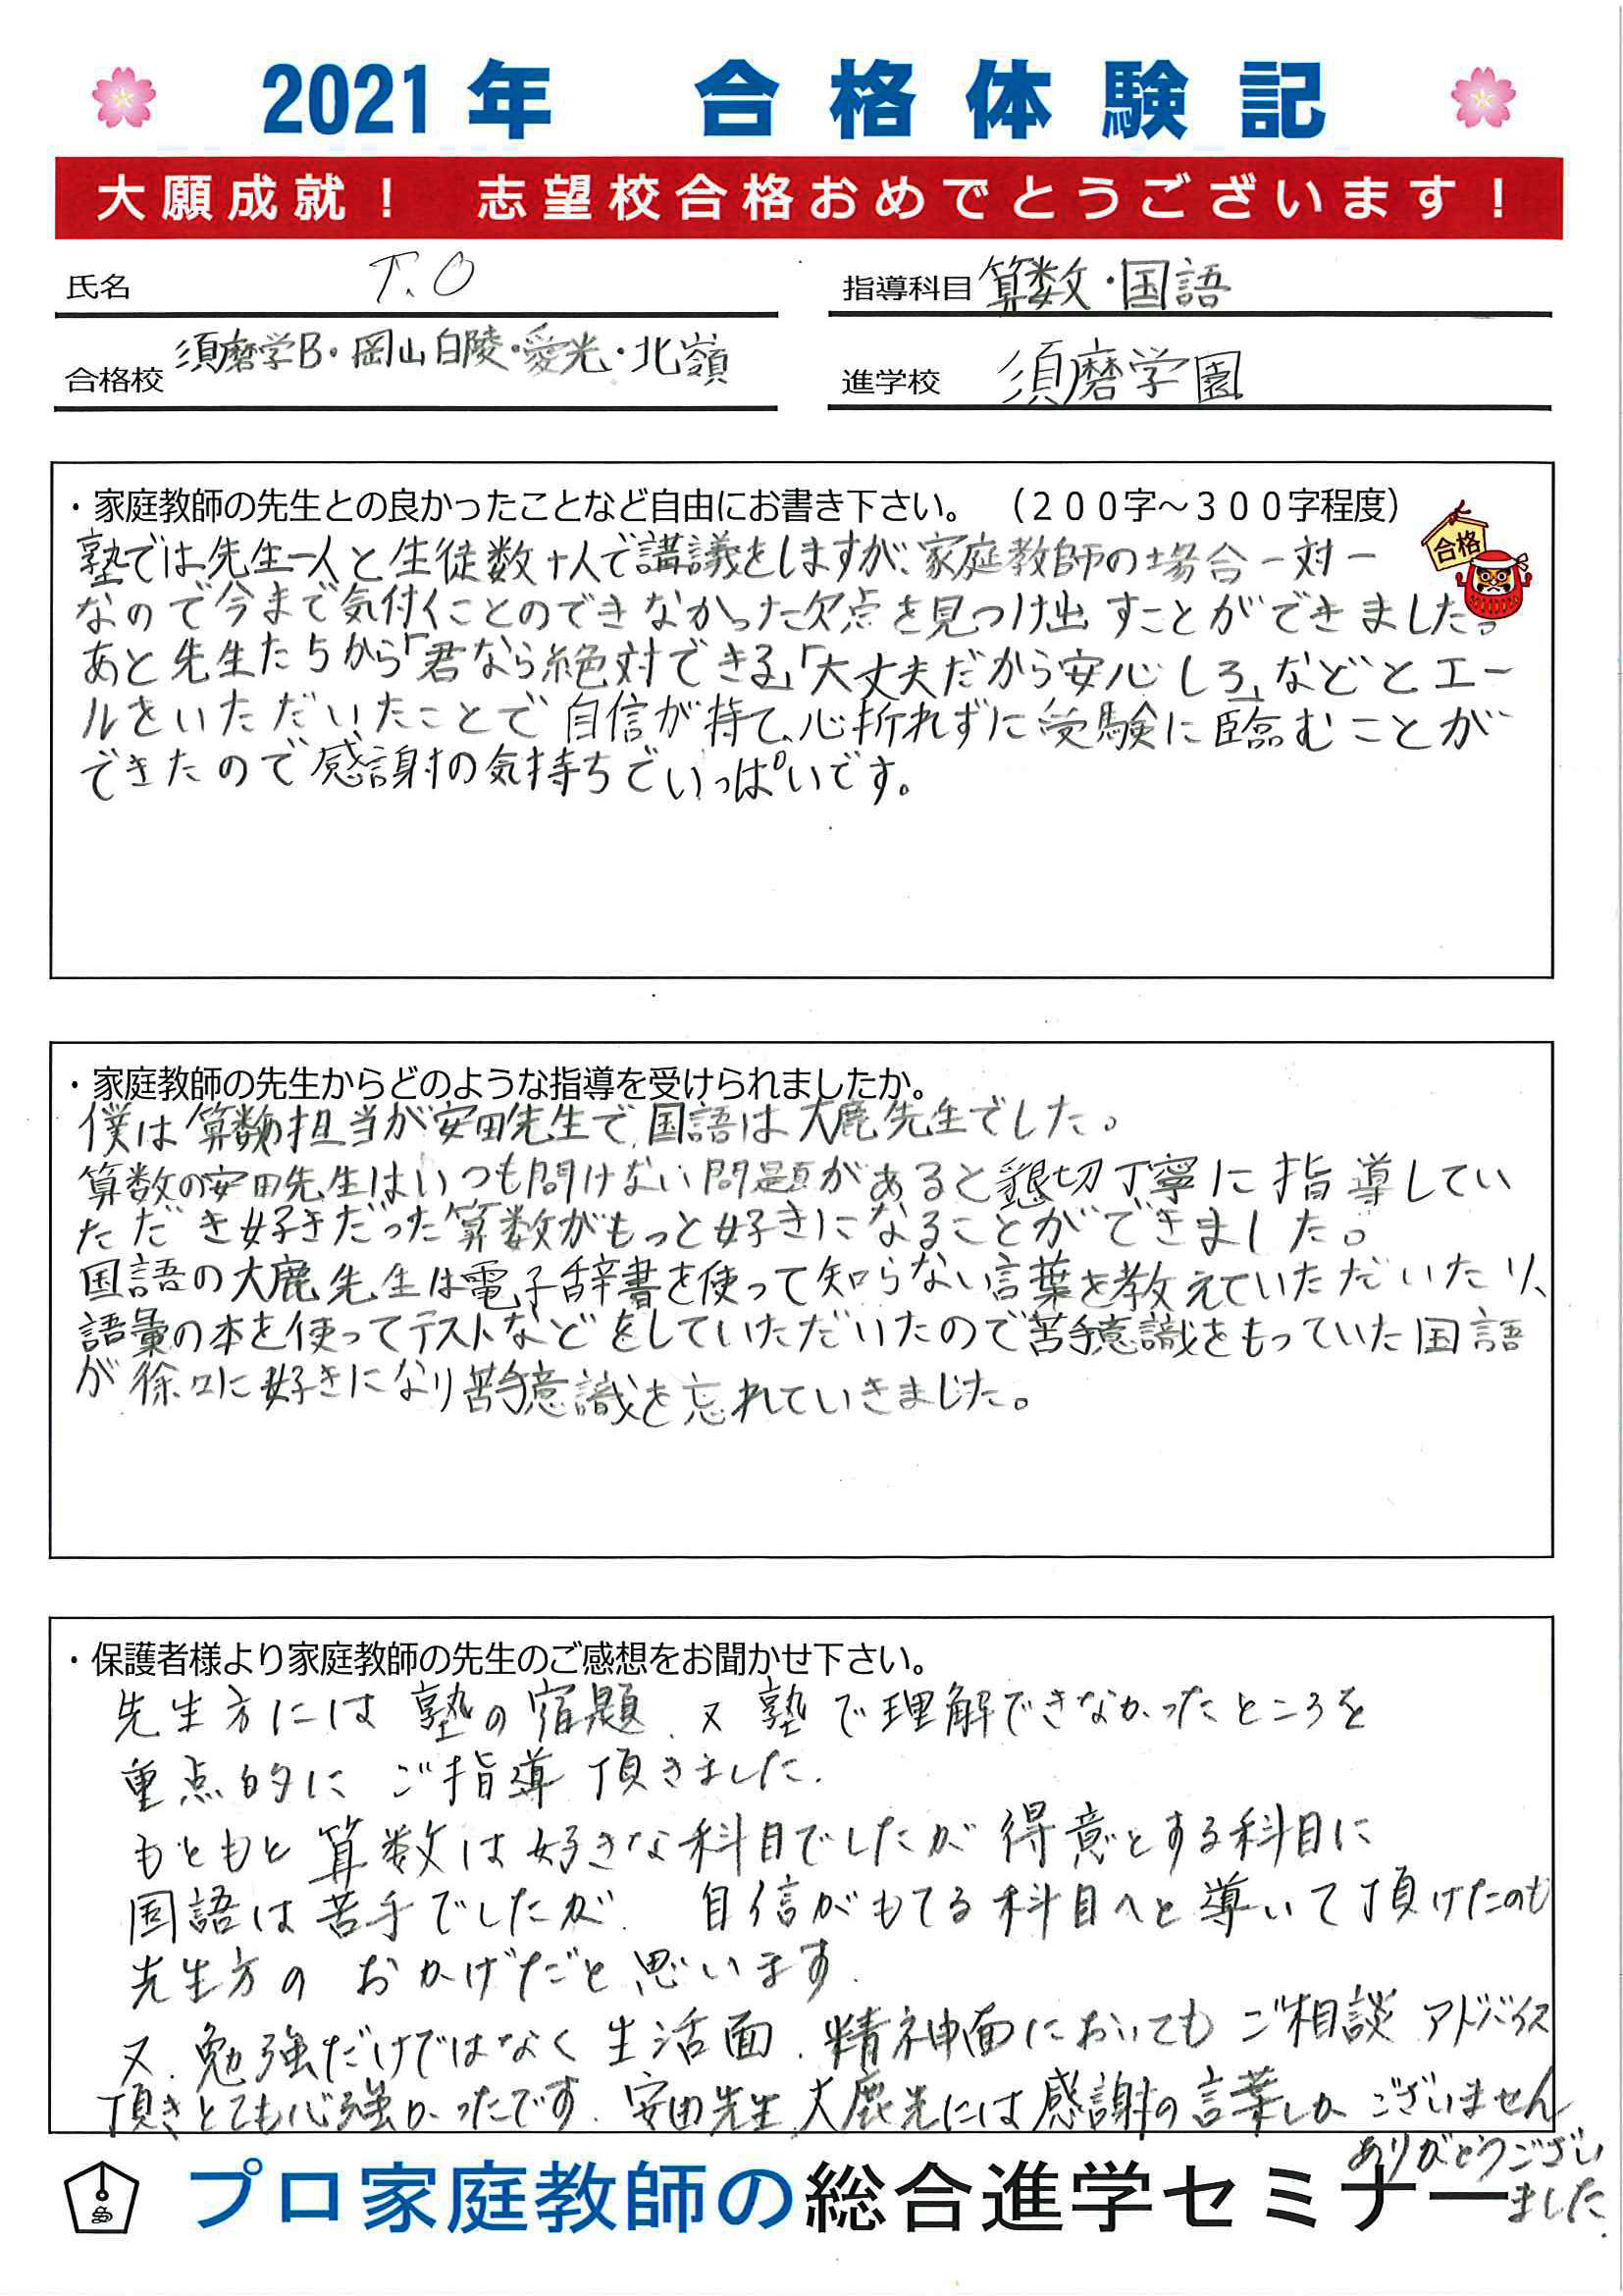 2021年 合格体験記
大願成就！ 志望校合格おめでとうございます！
氏名 T.O
指導科目 算数・国語
合格校 須磨学B・岡山白陵・愛光・北嶺
進学校 須磨学園
・家庭教師の先生との良かったことなど自由にお書き下さい。 （２００字～３００字程度）
合格
塾では、先生一人と生徒数十人で講議をしますが、家庭教師の場合一対一
なので今まで気付くことのできなかった欠点を見つけ出すことができました。
あと先生たちから「君なら絶対できる」「大丈夫だから安心しろ」などとエー
ルをいただいたことで自信が持て、心折れずに受験に臨むことが
できたので感謝の気持ちでいっぱいです。
・家庭教師の先生からどのような指導を受けられましたか。
僕は算数担当が安田先生で、国語は大鹿先生でした。
算数の安田先生はいつも問けない問題があると懇切丁寧に指導してい
ただき好きだった算数がもっと好きになることができました。
国語の大鹿先生は電子辞書を使って知らない言葉を教えていただいたり、
語彙の本を使ってテストなどをしていただいたので苦手意識をもっていた国語
が徐々に好きになり苦手意識を忘れていきました。
・保護者様より家庭教師の先生のご感想をお聞かせ下さい。
先生方には塾の宿題、又塾で理解できなかったところを
重点的にご指導頂きました.
もともと算数は好きな科目でしたが得意とする科目に
国語は苦手でしたが、自信がもてる科目へと導いて頂けたのも
先生方のおかげだと思います.
又、勉強だけではなく生活面、精神面においてもご相談アドバイス
頂きとても心強かったです.安田先生、大鹿先には感謝の言葉しかございません
ありがとうござい
ました.
プロ家庭教師の総合進学セミナー